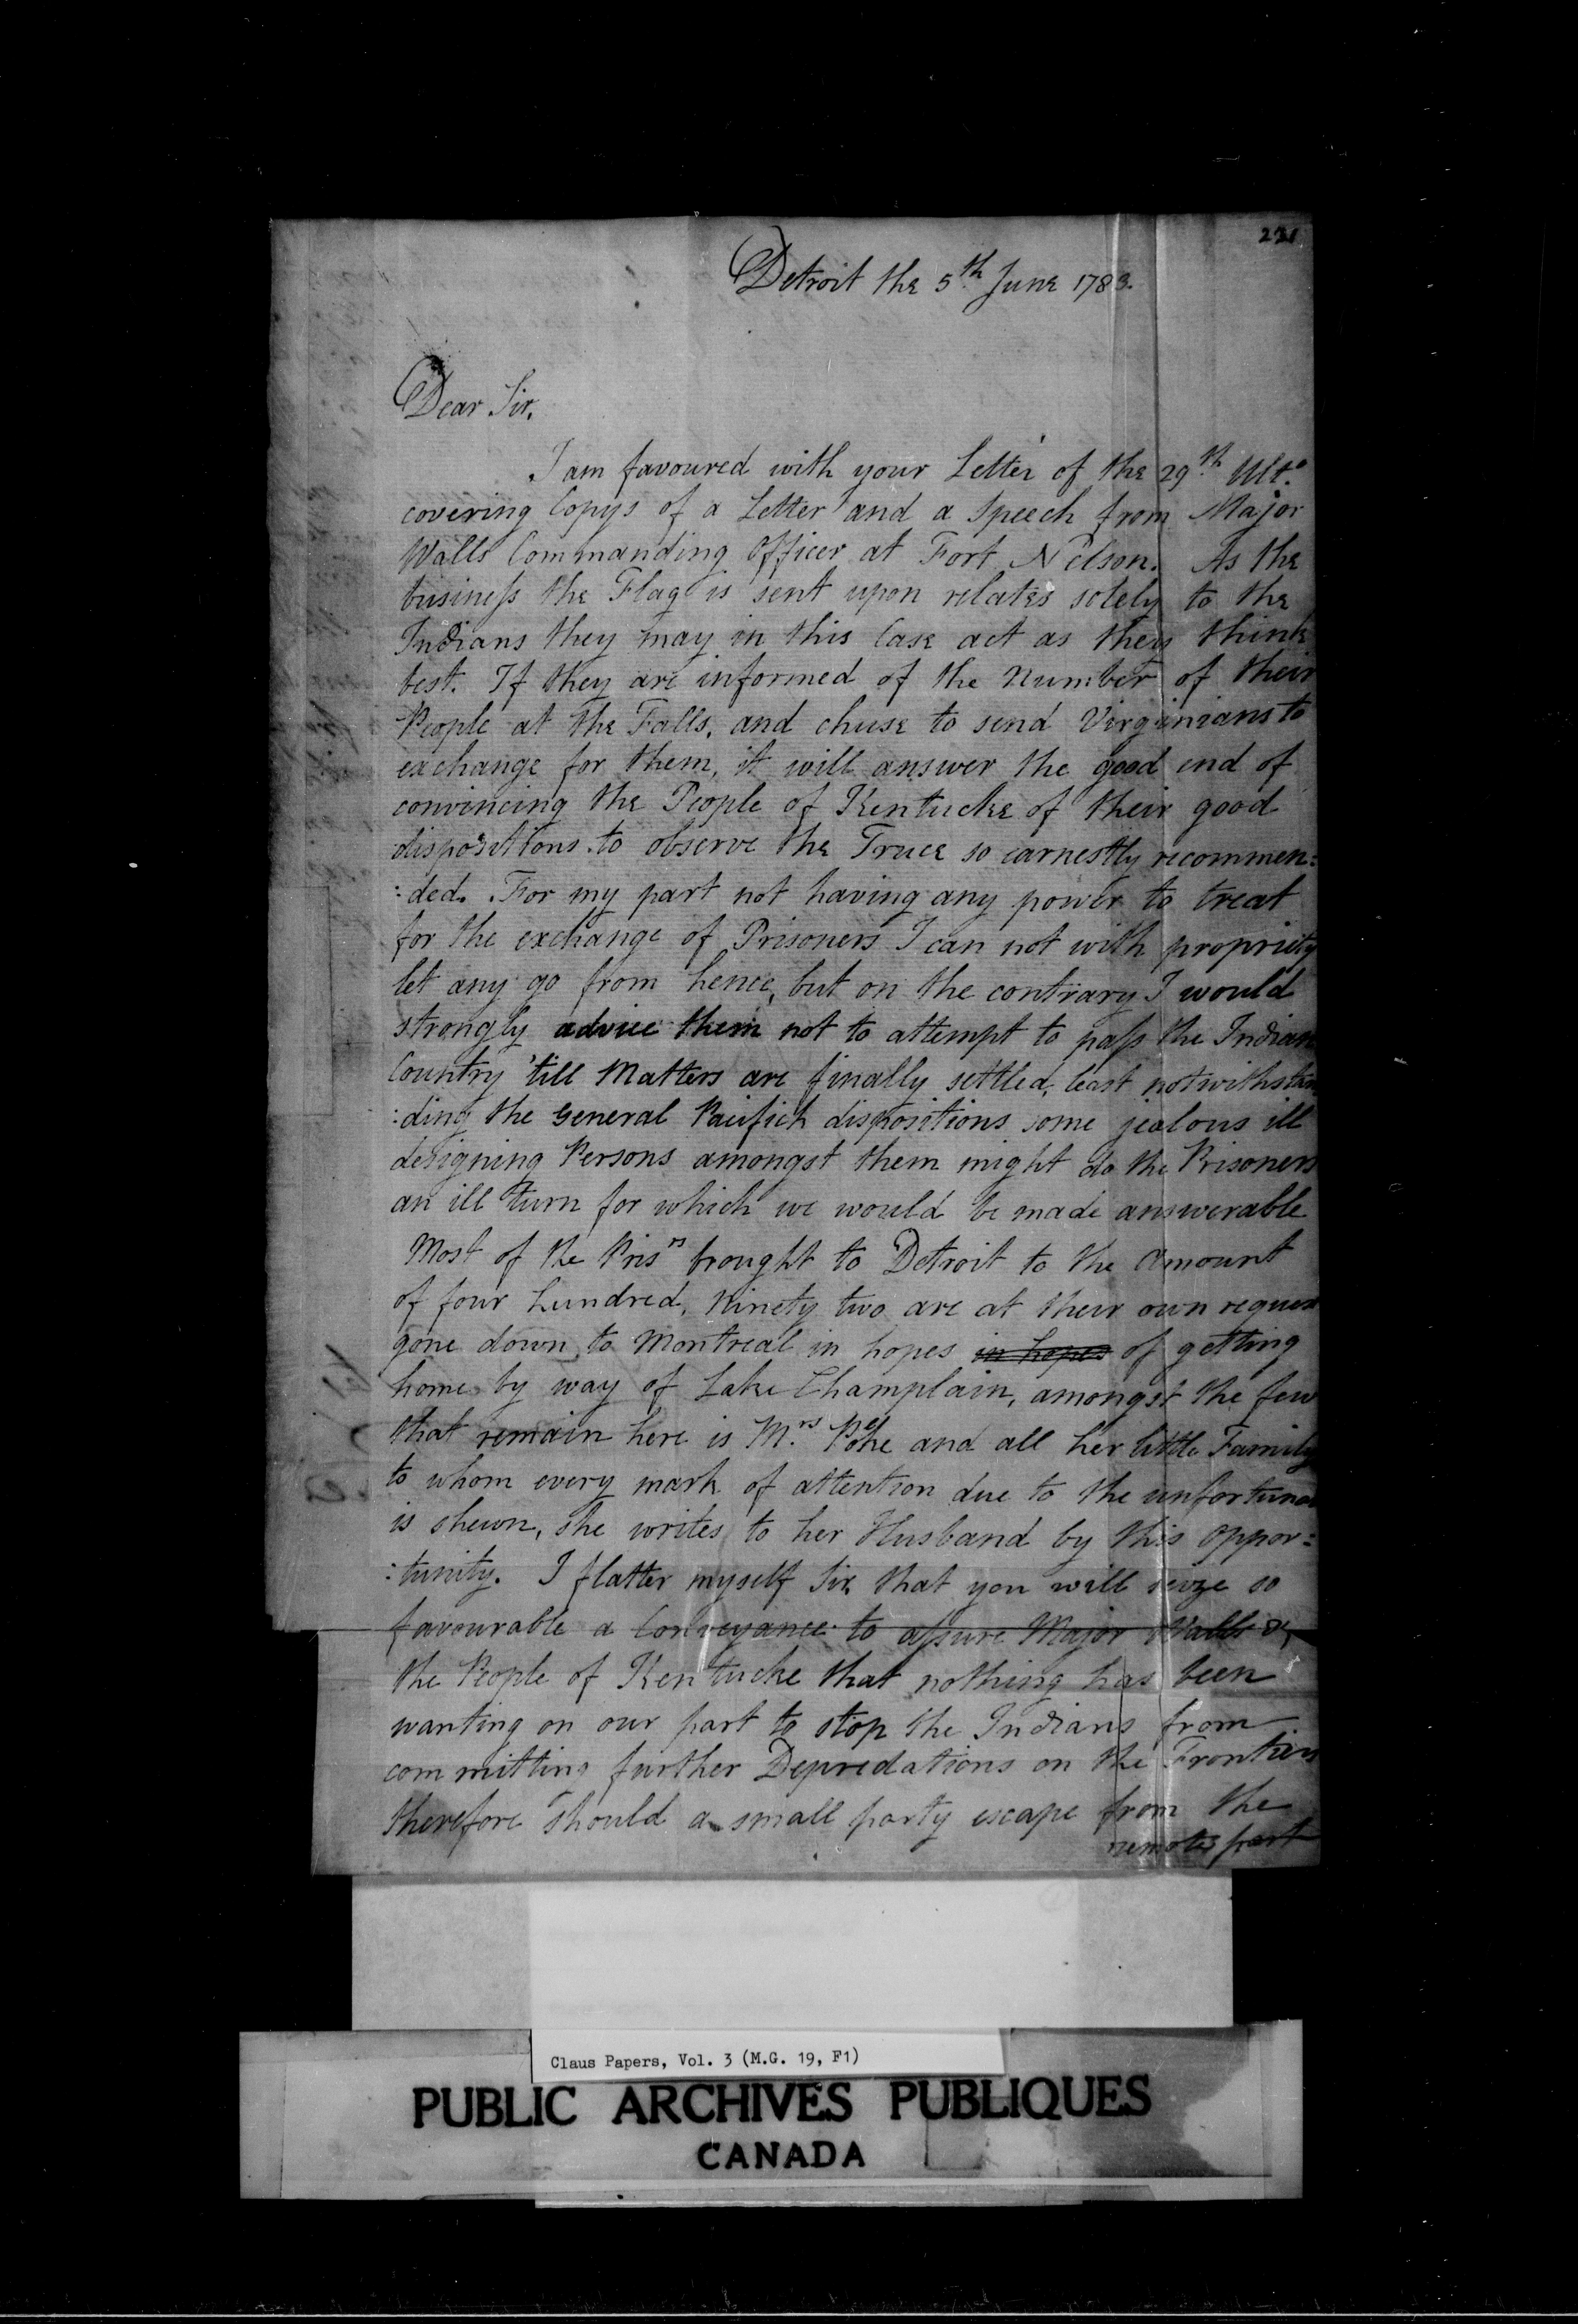 221
Detroit the 5th June 1783.
Dear Sir,
I am favoured with your Letter of the 29th Ulto
covering Copys of a Letter and a Speech from Major
Walls Commanding Officer at Fort Nelson. As the
business the Flag is sent upon relates solely to the
Indians they may in this Case act as they think
best. If they are informed of the Number of their
People at the Falls, and chuse to send Virginians to
exchange for them, it will answer the good end of
convincing the People of Kentucke of their good
dispositions to observe the Truce so earnestly recommen:
:ded. For my part not having any power to treat
for the exchange of Prisoners I can not with propriety
let any go from hence, but on the contrary I would
strongly advice them not to attempt to pass the Indian
Country 'till Matters are finally settled, least notwithstan
:ding the General Pacifick dispositions some jealous ill
designing Persons amongst them might do the Prisoners
an ill turn for which we would be made answerable
Most of the Prisrs brought to Detroit to the amount
of four hundred, Ninety two are at their own request
gone down to Montreal in hopes in hopes of getting
home by way of Lake Champlain, amongst the few
that remain here is Mrs and all her little Family
to whom every mark of attention due to the unfortunate
is shewn, she writes to her Husband by this oppor:
:tunity. I flatter myself Sir that you will seize so
favourable a Conveyance to assure Major Walls &
the People of Kentucke that nothing has been
wanting on our part to stop the Indians from
committing further Depredations on the Frontiers
therefore should a small party escape from the
remotes part
Claus Papers, Vol. 3 (M.G. 19, F1)
PUBLIC ARCHIVES PUBLIQUES
CANADA